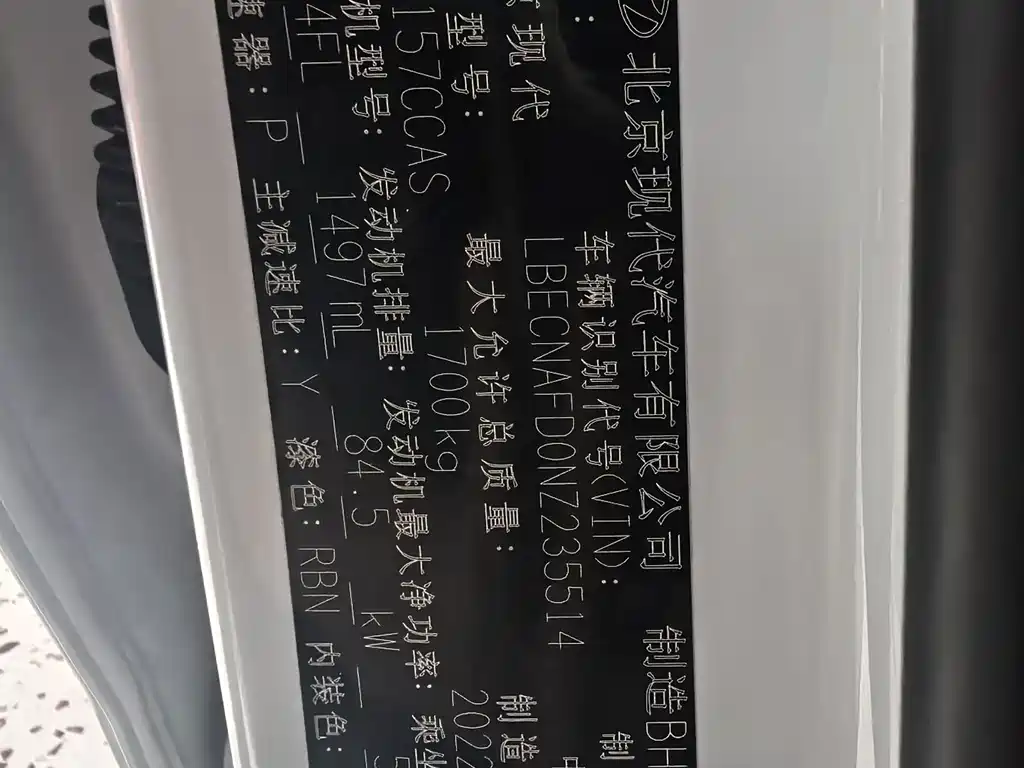 北京现代汽车有限公司 制造BH
车辆识别代号(VIN): 制
现代 LBECNAFD0NZ235514
型号: 最大允许总质量: 制造
157CCAS 1700kg 2022
机型号: 发动机排量: 发动机最大净功率: 乘坐
4FL 1497mL 84.5 kW
器: P 主减速比: Y 漆色: RBN 内装色: